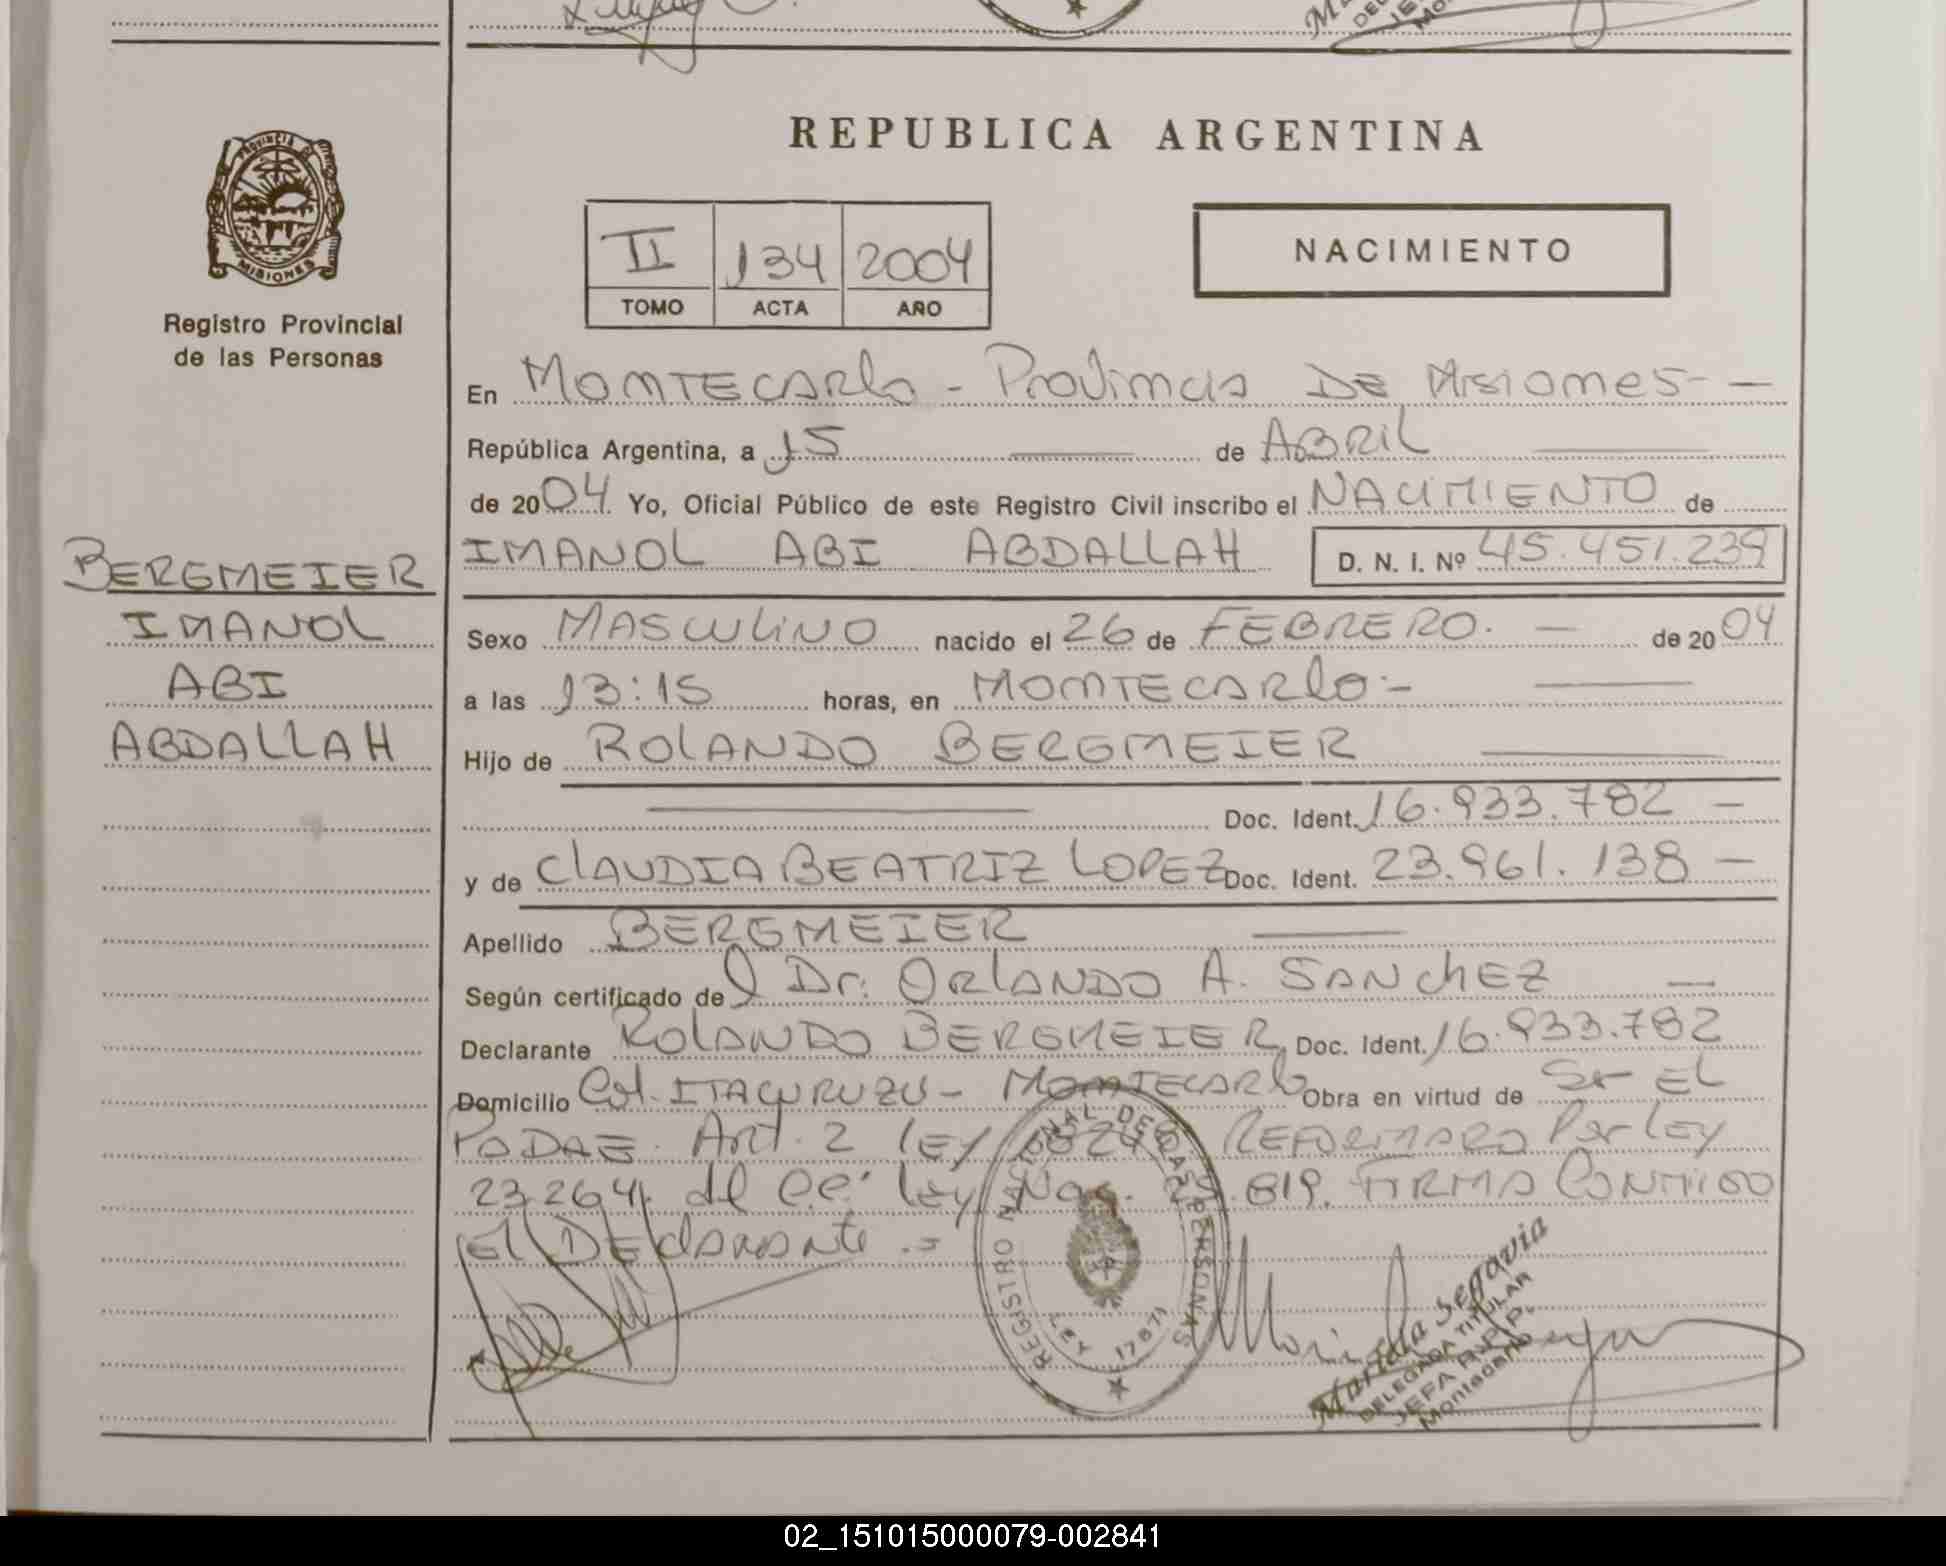 REPUBLICA ARGENTINA
PROVINCIA DE
MISIONES
Registro Provincial
de las Personas
II 134 2004
TOMO ACTA AÑO
NACIMIENTO
En MONTECARLO - PROVINCIA DE MISIONES -
República Argentina, a 15 de ABRIL
de 2004 Yo, Oficial Público de este Registro Civil inscribo el NACIMIENTO de
IMANOL ABI ABDALLAH D. N. I. Nº 45.451.239
BERGMEIER
IMANOL
ABI
ABDALLAH
Sexo MASCULINO nacido el 26 de FEBRERO. - de 2004
a las 13:15 horas, en MONTECARLO.-
Hijo de ROLANDO BERGMEIER
Doc. Ident. 16.933.782 -
y de CLAUDIA BEATRIZ LOPEZ Doc. Ident. 23.961.138 -
Apellido BERGMEIER
Según certificado de Dr. ORLANDO A. SANCHEZ -
Declarante ROLANDO BERGMEIER Doc. Ident. 16.933.782
Domicilio Col. ITACURUZU - MONTECARLO Obra en virtud de Sr EL
PADRE. Art. 2 LEY REFORMADO Por LEY
23.264 del CC. Ley Nac. .619. FIRMA CONMIGO
El DEClarante .=
REGISTRO NACIONAL DE LAS PERSONAS
LEY 17671
Mariana Segovia
DELEGADA TITULAR
JEFA R.P.P.
Montecarlo
02_151015000079-002841